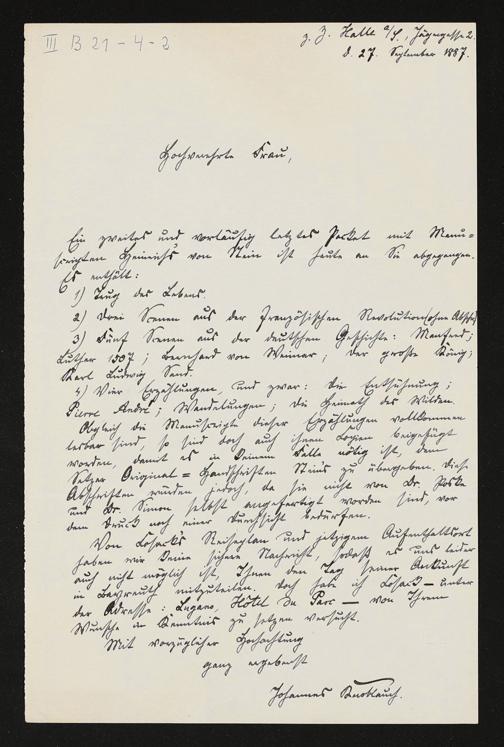 III B 21-4-2
z. Z. Halle a/S., Jägergasse 2.
d. 27. September 1887.
Hochverehrte Frau,
Ein zweites und vorläufig letztes Packet mit Manu=
scripten Heinrichs von Stein ist heute an Sie abgegangen.
Es enthält:
1) Trug des Lebens.
2) Drei Scenen aus der französischen Revolution (ohne Abschrift
3) Fünf Scenen aus der deutschen Geschichte: Manfred;
Luther 1507; Bernhard von Weimar; Der große König;
Karl Ludwig Sand.
4) Vier Erzählungen, und zwar: Die Entsühnung;
Pierre André; Wandelungen; Die Heimath des Wilden.
Obgleich die Manuscripte dieser Erzählungen vollkommen
lesbar sind, so sind doch auch ihnen Copien beigefügt
worden, damit es in keinem Falle nötig ist, dem
Setzer Original=Handschriften Steins zu übergeben. Diese
Abschriften würden jedoch, da sie nicht von Dr. Poske
und Dr. Simon selbst angefertigt worden sind, vor
dem Druck noch einer Durchsicht bedürfen.
Von Losacks Reiseplan und jetzigem Aufenthaltsort
haben wir keine sichere Nachricht, sodaß es uns leider
auch nicht möglich ist, Ihnen den Tag seiner Ankunft
in Bayreuth mitzuteilen, doch habe ich Losack — unter
der Adresse: Lugano, Hôtel du Parc — von Ihrem
Wunsche in Kenntnis zu setzen versucht.
Mit vorzüglicher Hochachtung
ganz ergebenst
Johannes Knoblauch.